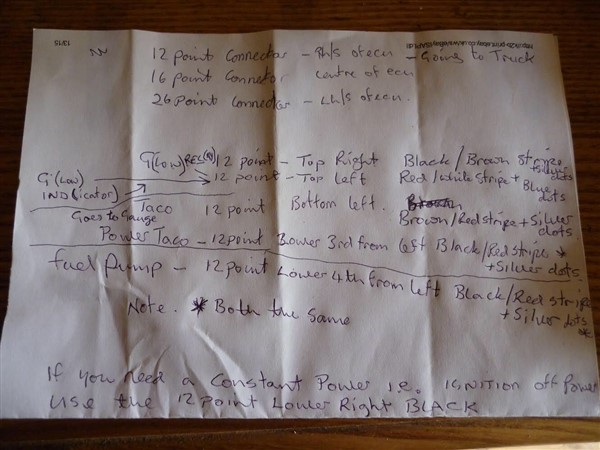 12 point Connector - Rh/s of ecu - Going to Truck
16 point Connetor centre of ecu
26 point Connector - Lh/s of ecu.
G(Low) REC(Q) 12 point - Top Right Black/Brown stripe + silver dots
G(Low) INDicator) 12 point - Top Left Red/white stripe + Blue dots
Goes to Gauge
Taco 12 point Bottom left. Brown/Red stripe + Silver dots
Power Taco - 12 point Lower 3rd from left Black/Red stripe * + Silver dots
fuel Pump - 12 point Lower 4th from left Black/Red stripe + Silver dots *
Note. * Both the Same
If you need a Constant Power i.e. IGNITION off Power
Use the 12 point Lower Right BLACK
13/15